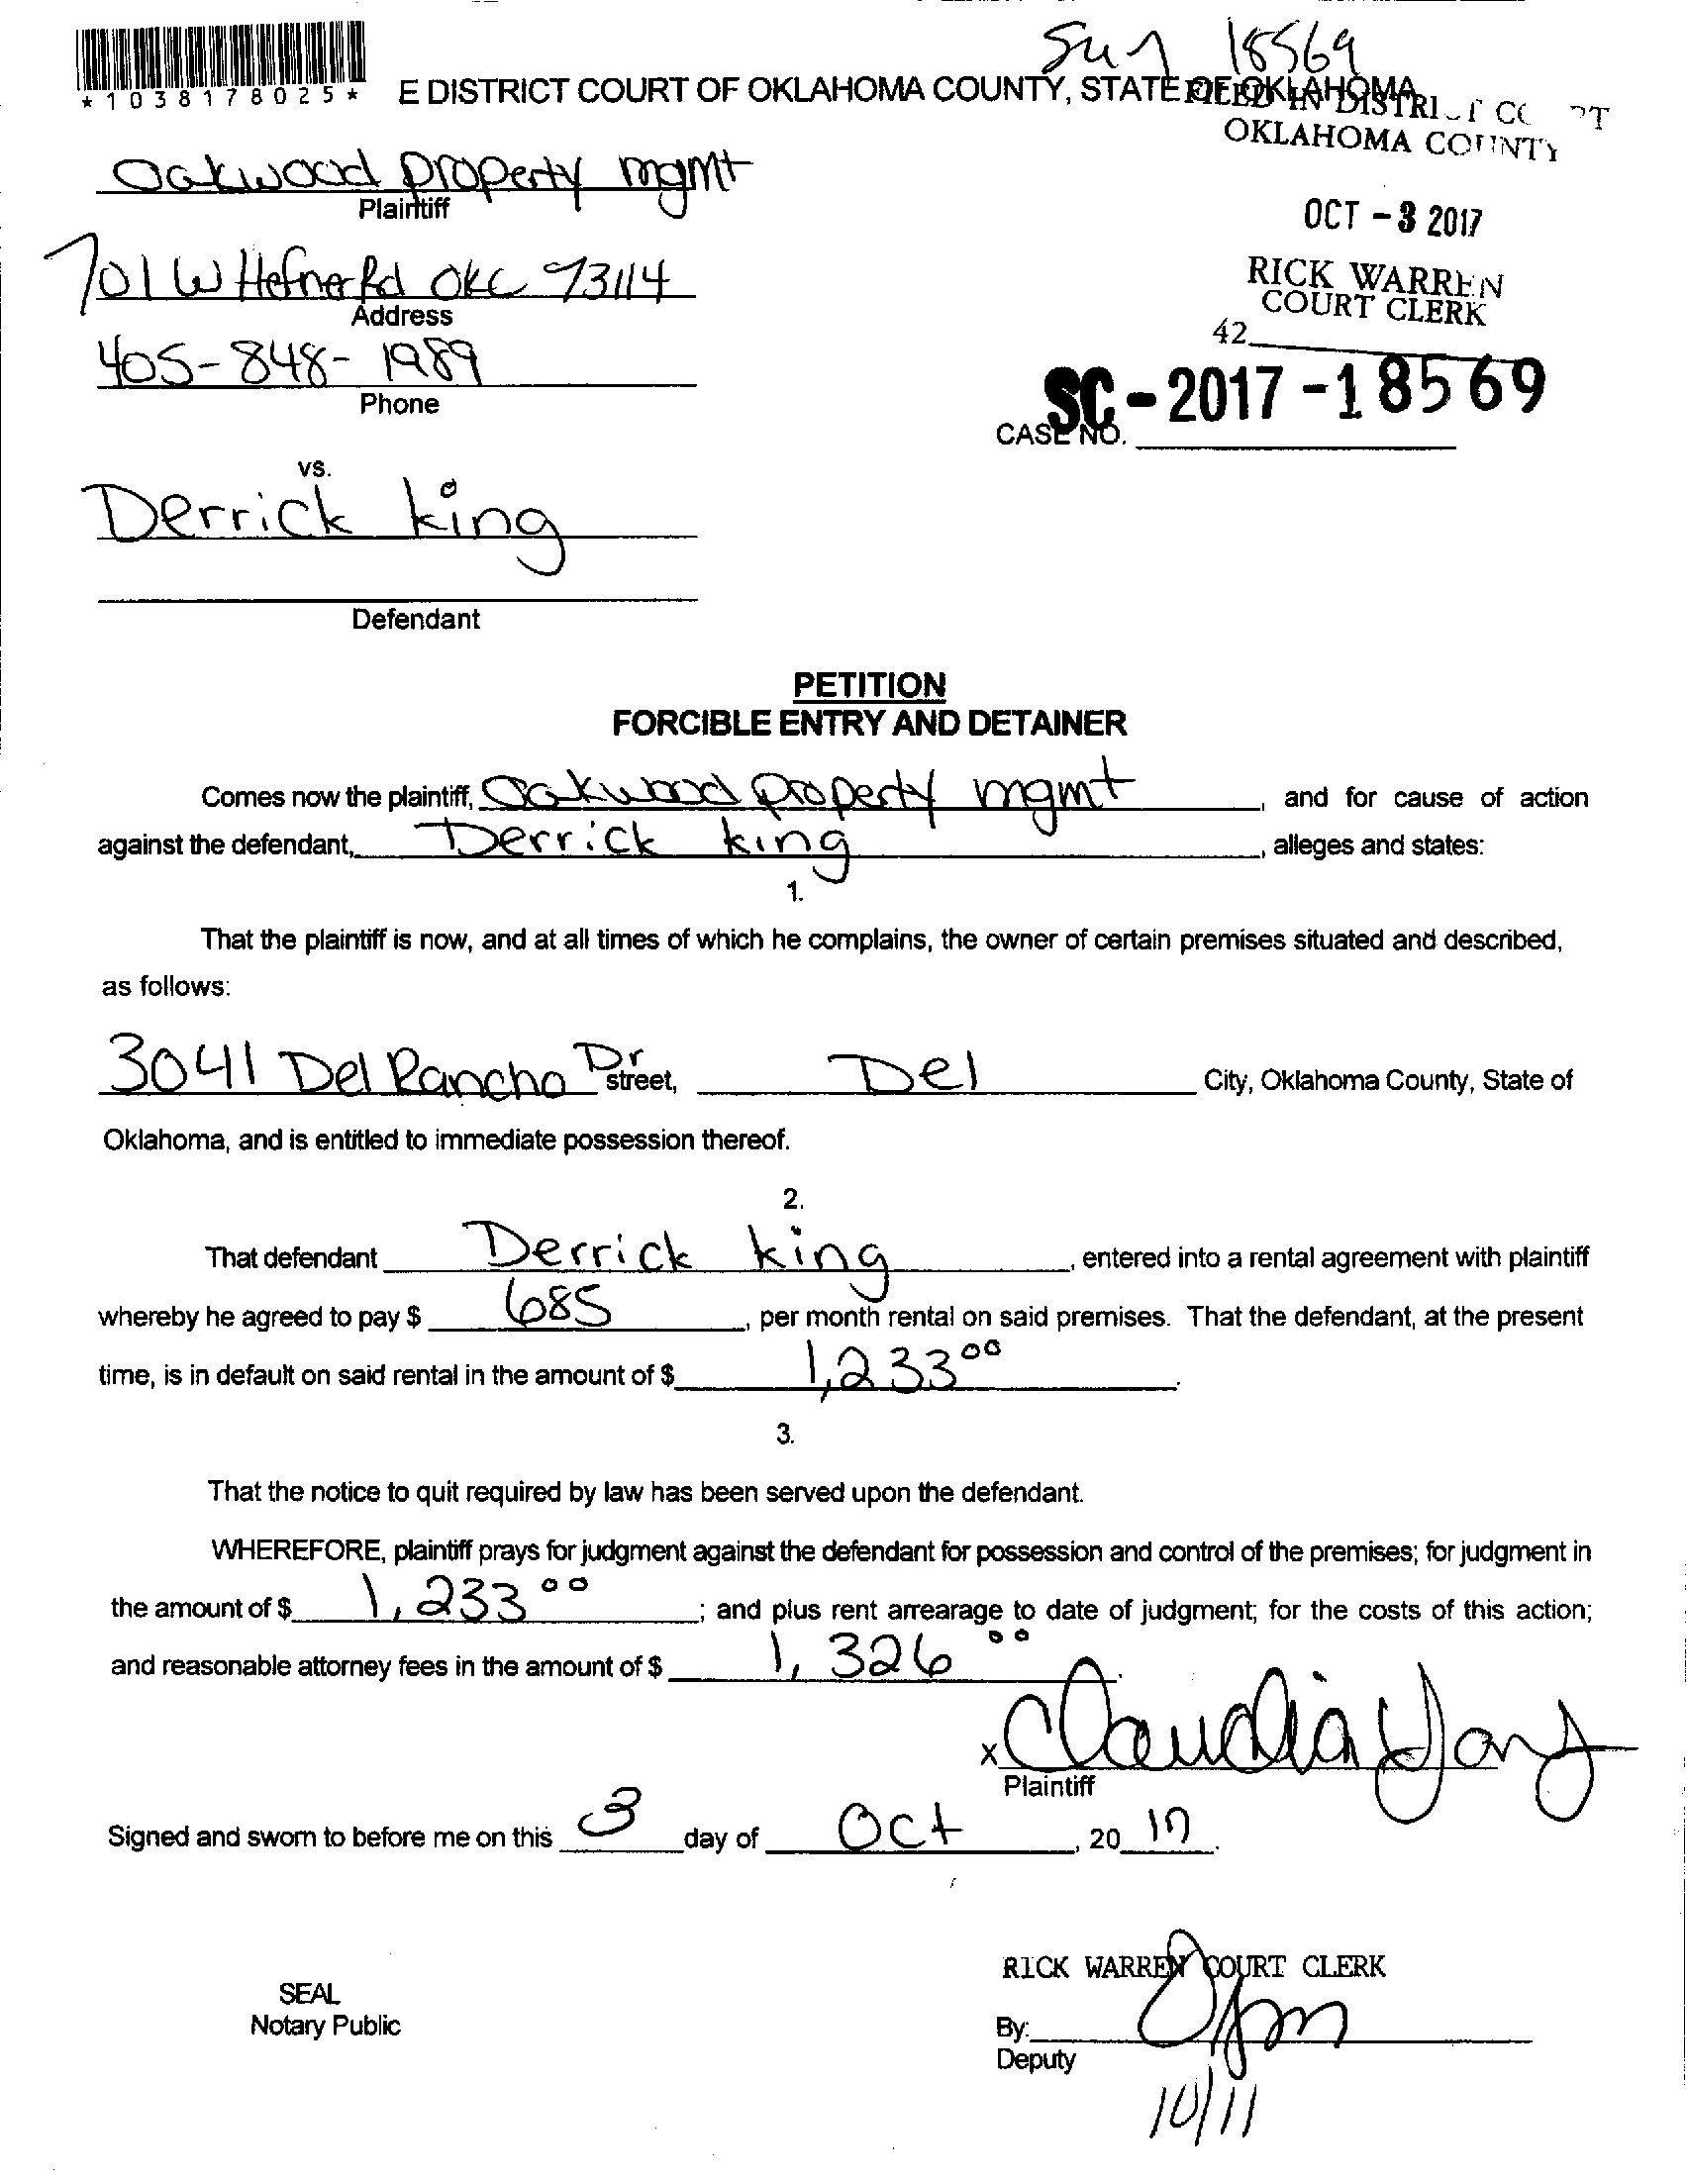 Sum 18569
*1038178025*
E DISTRICT COURT OF OKLAHOMA COUNTY, STATE OF OKLAHOMA
FILED IN DISTRICT COURT
OKLAHOMA COUNTY
Oakwood property mgmt
Plaintiff
OCT - 3 2017
701 W Hefner Rd OKC 73114
Address
RICK WARREN
COURT CLERK
42
405-848-1989
Phone
SC - 2017 - 18569
CASE NO.
vs.
Derrick king
Defendant
PETITION
FORCIBLE ENTRY AND DETAINER
Comes now the plaintiff, Oakwood property mgmt, and for cause of action
against the defendant, Derrick king, alleges and states:
1.
That the plaintiff is now, and at all times of which he complains, the owner of certain premises situated and described,
as follows:
3041 Del Rancho Dr street, Del City, Oklahoma County, State of
Oklahoma, and is entitled to immediate possession thereof.
2.
That defendant Derrick king, entered into a rental agreement with plaintiff
whereby he agreed to pay $ 685, per month rental on said premises. That the defendant, at the present
time, is in default on said rental in the amount of $ 1,233 00.
3.
That the notice to quit required by law has been served upon the defendant.
WHEREFORE, plaintiff prays for judgment against the defendant for possession and control of the premises; for judgment in
the amount of $ 1,233 00; and plus rent arrearage to date of judgment; for the costs of this action;
and reasonable attorney fees in the amount of $ 1,326 00.
x Claudia
Plaintiff
Signed and sworn to before me on this 3 day of Oct, 20 17.
RICK WARREN COURT CLERK
SEAL
Notary Public
By:
Deputy
10/11